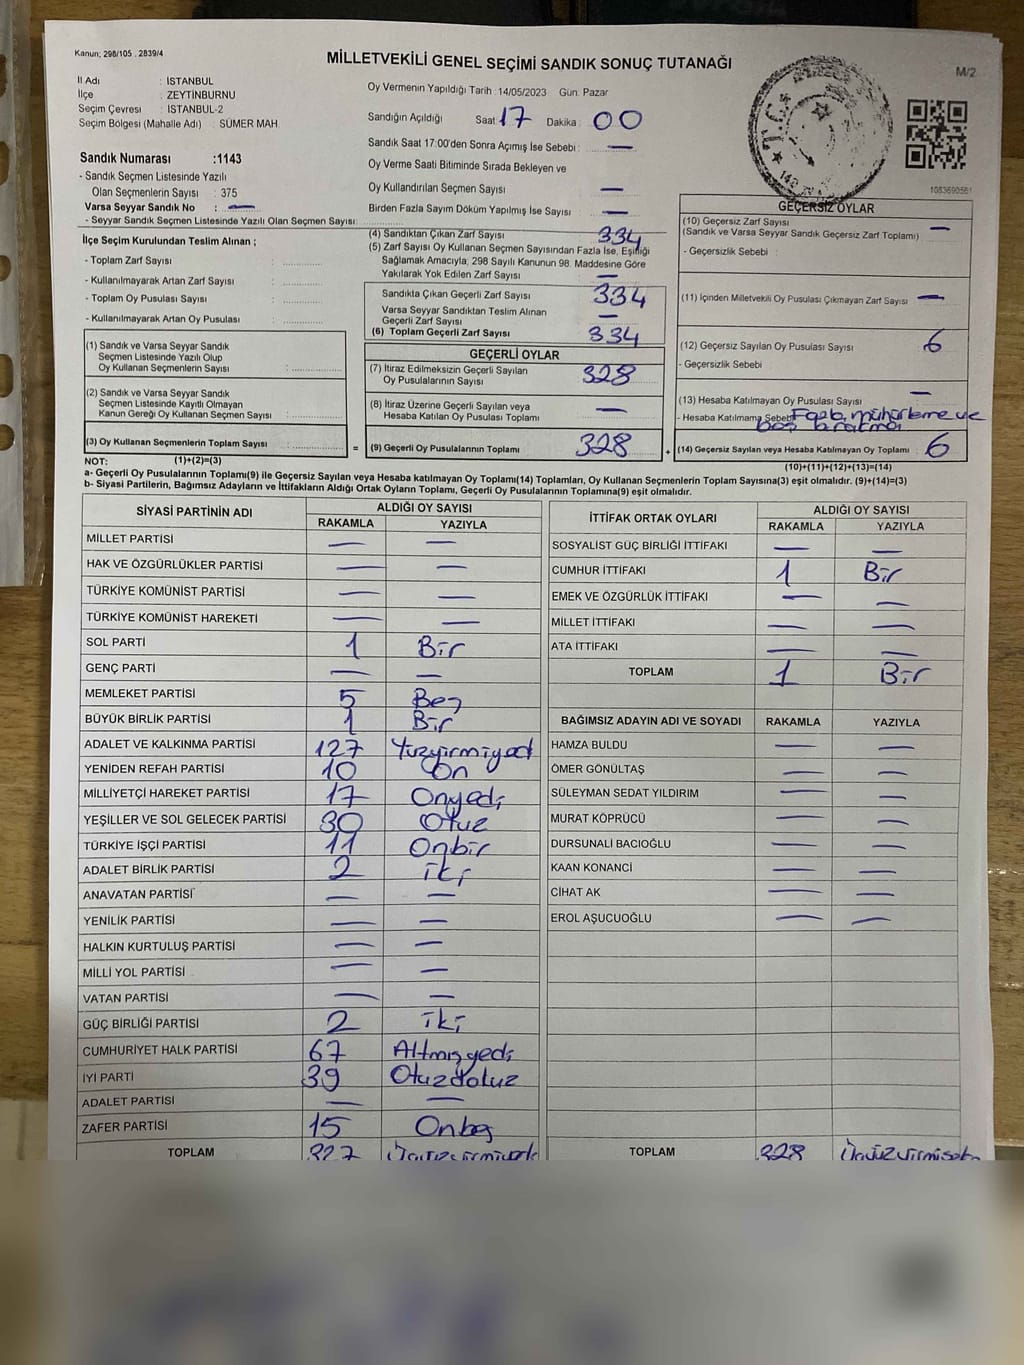 Kanun; 298/105 . 2839/4
MİLLETVEKİLİ GENEL SEÇİMİ SANDIK SONUÇ TUTANAĞI
M/2
İl Adı : İSTANBUL
İlçe : ZEYTİNBURNU
Seçim Çevresi : İSTANBUL-2
Seçim Bölgesi (Mahalle Adı) : SÜMER MAH.
Sandık Numarası :1143
- Sandık Seçmen Listesinde Yazılı
Olan Seçmenlerin Sayısı : 375
Varsa Seyyar Sandık No : —
- Seyyar Sandık Seçmen Listesinde Yazılı Olan Seçmen Sayısı:
Oy Vermenin Yapıldığı Tarih :14/05/2023 Gün: Pazar
Sandığın Açıldığı Saat 17 Dakika : 00
Sandık Saat 17:00'den Sonra Açımış İse Sebebi : —
Oy Verme Saati Bitiminde Sırada Bekleyen ve
Oy Kullandırılan Seçmen Sayısı —
Birden Fazla Sayım Döküm Yapılmış İse Sayısı —
1083690551
İlçe Seçim Kurulundan Teslim Alınan ;
- Toplam Zarf Sayısı :
- Kullanılmayarak Artan Zarf Sayısı :
- Toplam Oy Pusulası Sayısı :
- Kullanılmayarak Artan Oy Pusulası :
(1) Sandık ve Varsa Seyyar Sandık
Seçmen Listesinde Yazılı Olup
Oy Kullanan Seçmenlerin Sayısı :
(2) Sandık ve Varsa Seyyar Sandık
Seçmen Listesinde Kayıtlı Olmayan
Kanun Gereği Oy Kullanan Seçmen Sayısı :
(3) Oy Kullanan Seçmenlerin Toplam Sayısı :
(1)+(2)=(3)
(4) Sandıktan Çıkan Zarf Sayısı 334
(5) Zarf Sayısı Oy Kullanan Seçmen Sayısından Fazla İse, Eşitliği
Sağlamak Amacıyla, 298 Sayılı Kanunun 98. Maddesine Göre
Yakılarak Yok Edilen Zarf Sayısı —
Sandıkta Çıkan Geçerli Zarf Sayısı 334
Varsa Seyyar Sandıktan Teslim Alınan
Geçerli Zarf Sayısı —
(6) Toplam Geçerli Zarf Sayısı 334
GEÇERLİ OYLAR
(7) İtiraz Edilmeksizin Geçerli Sayılan
Oy Pusulalarının Sayısı 328
(8) İtiraz Üzerine Geçerli Sayılan veya
Hesaba Katılan Oy Pusulası Toplamı —
= (9) Geçerli Oy Pusulalarının Toplamı 328
GEÇERSİZ OYLAR
(10) Geçersiz Zarf Sayısı
(Sandık ve Varsa Seyyar Sandık Geçersiz Zarf Toplamı) —
- Geçersizlik Sebebi :
(11) İçinden Milletvekili Oy Pusulası Çıkmayan Zarf Sayısı —
(12) Geçersiz Sayılan Oy Pusulası Sayısı 6
- Geçersizlik Sebebi
(13) Hesaba Katılmayan Oy Pusulası Sayısı —
- Hesaba Katılmama Sebebi Fazla mühürleme ve
boş bırakma
+ (14) Geçersiz Sayılan veya Hesaba Katılmayan Oy Toplamı 6
(10)+(11)+(12)+(13)=(14)
NOT:
a- Geçerli Oy Pusulalarının Toplamı(9) ile Geçersiz Sayılan veya Hesaba katılmayan Oy Toplamı(14) Toplamları, Oy Kullanan Seçmenlerin Toplam Sayısına(3) eşit olmalıdır. (9)+(14)=(3)
b- Siyasi Partilerin, Bağımsız Adayların ve İttifakların Aldığı Ortak Oyların Toplamı, Geçerli Oy Pusulalarının Toplamına(9) eşit olmalıdır.
SİYASİ PARTİNİN ADI ALDIĞI OY SAYISI
RAKAMLA YAZIYLA
MİLLET PARTİSİ — —
HAK VE ÖZGÜRLÜKLER PARTİSİ — —
TÜRKİYE KOMÜNİST PARTİSİ — —
TÜRKİYE KOMÜNİST HAREKETİ — —
SOL PARTİ 1 Bir
GENÇ PARTİ — —
MEMLEKET PARTİSİ 5 Beş
BÜYÜK BİRLİK PARTİSİ 1 Bir
ADALET VE KALKINMA PARTİSİ 127 Yüzyirmiyedi
YENİDEN REFAH PARTİSİ 10 On
MİLLİYETÇİ HAREKET PARTİSİ 17 Onyedi
YEŞİLLER VE SOL GELECEK PARTİSİ 30 Otuz
TÜRKİYE İŞÇİ PARTİSİ 11 Onbir
ADALET BİRLİK PARTİSİ 2 iki
ANAVATAN PARTİSİ — —
YENİLİK PARTİSİ — —
HALKIN KURTULUŞ PARTİSİ — —
MİLLİ YOL PARTİSİ — —
VATAN PARTİSİ — —
GÜÇ BİRLİĞİ PARTİSİ 2 iki
CUMHURİYET HALK PARTİSİ 67 Altmışyedi
İYİ PARTİ 39 Otuzdokuz
ADALET PARTİSİ — —
ZAFER PARTİSİ 15 Onbeş
TOPLAM 327
İTTİFAK ORTAK OYLARI ALDIĞI OY SAYISI
RAKAMLA YAZIYLA
SOSYALİST GÜÇ BİRLİĞİ İTTİFAKI — —
CUMHUR İTTİFAKI 1 Bir
EMEK VE ÖZGÜRLÜK İTTİFAKI — —
MİLLET İTTİFAKI — —
ATA İTTİFAKI — —
TOPLAM 1 Bir
BAĞIMSIZ ADAYIN ADI VE SOYADI RAKAMLA YAZIYLA
HAMZA BULDU — —
ÖMER GÖNÜLTAŞ — —
SÜLEYMAN SEDAT YILDIRIM — —
MURAT KÖPRÜCÜ — —
DURSUNALİ BACIOĞLU — —
KAAN KONANCİ — —
CİHAT AK — —
EROL AŞUCUOĞLU — —
TOPLAM 328